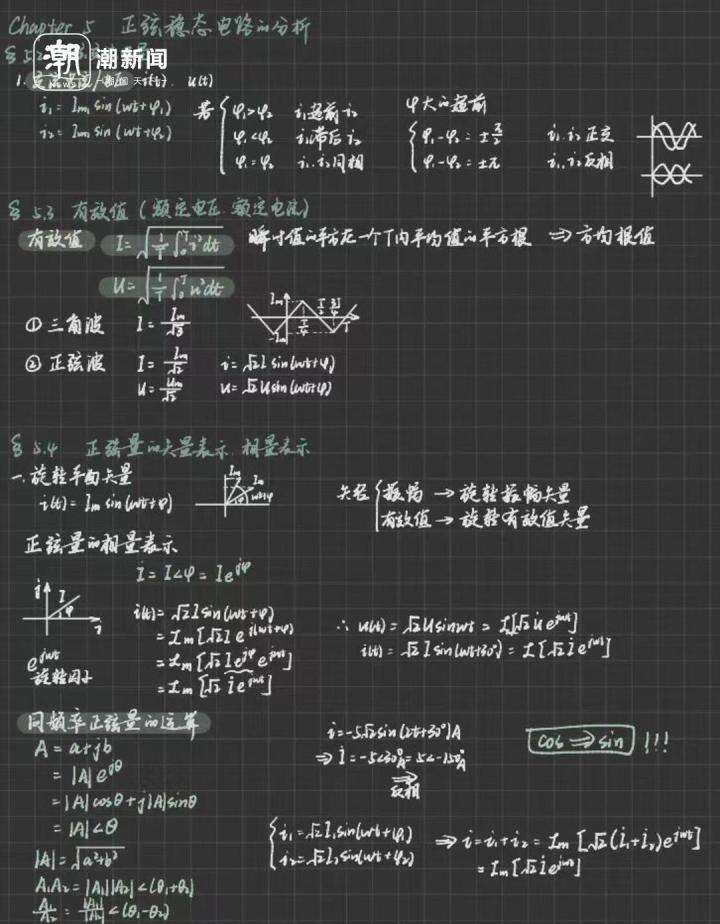 Chapter 5 正弦稳态电路的分析
§ 5.2
潮新闻
1. i(t). u(t)
i₁ = Im₁ sin(wt+φ₁)
i₂ = Im sin(wt+φ₂)
若 { φ₁>φ₂ i₁超前i₂
φ₁<φ₂ i₁滞后i₂
φ₁=φ₂ i₁. i₂同相
φ大的超前
{ φ₁-φ₂ = ±π/2 i₁. i₂正交
φ₁-φ₂ = ±π i₁. i₂反相
§ 5.3 有效值 (额定电压. 额定电流)
有效值 I = √(1/T ∫₀ᵀ i²dt) 瞬时值的平方在一个T内平均值的平方根 ⇒ 方均根值
U = √(1/T ∫₀ᵀ u²dt)
① 三角波 I = Im/√3
② 正弦波 I = Im/√2 i = √2 I sin(wt+φ)
U = Um/√2 u = √2 U sin(wt+φ)
§ 5.4 正弦量的矢量表示. 相量表示
一. 旋转平面矢量
i(t) = Im sin(wt+φ)
矢径 { 振幅 → 旋转振幅矢量
有效值 → 旋转有效值矢量
正弦量的相量表示
İ = I∠φ = Ie^jφ
i(t) = √2 I sin(wt+φ)
= Im[√2 I e^j(wt+φ)]
= Im[√2 I e^jφ e^jwt]
= Im[√2 İ e^jwt]
e^jwt
旋转因子
∴ u(t) = √2 U sinwt = I[√2 U̇ e^jwt]
i(t) = √2 I sin(wt+30°) = I[√2 İ e^jwt]
同频率正弦量的运算
A = a+jb
= |A| e^jθ
= |A| cosθ + j|A| sinθ
= |A|∠θ
|A| = √(a²+b²)
A₁A₂ = |A₁||A₂|∠(θ₁+θ₂)
A₁/A₂ = |A₁|/|A₂| ∠(θ₁-θ₂)
i = -5√2 sin(2t+30°)A
⇒ İ = -5∠30°A = 5∠-150°A
⇒
反相
cos ⇒ sin !!!
{ i₁ = √2 I₁ sin(wt+φ₁)
i₂ = √2 I₂ sin(wt+φ₂)
⇒ i = i₁+i₂ = Im[√2(İ₁+İ₂)e^jwt]
= Im[√2 İ e^jwt]